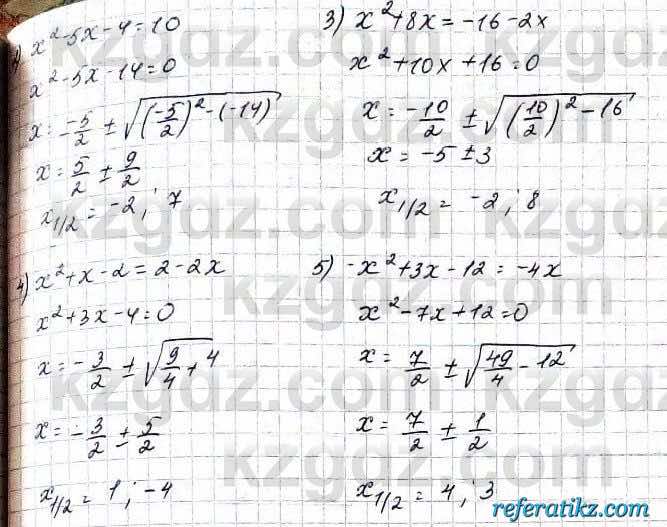 1) x²-5x-4=10
x²-5x-14=0
x = -5/2 ± √((-5/2)²-(-14))
x = 5/2 ± 9/2
x1/2 = -2; 7
3) x²+8x = -16-2x
x²+10x+16=0
x = -10/2 ± √((10/2)²-16)
x = -5 ± 3
x1/2 = -2; 8
4) x²+x-2 = 2-2x
x²+3x-4=0
x = -3/2 ± √(9/4+4)
x = -3/2 ± 5/2
x1/2 = 1; -4
5) -x²+3x-12 = -4x
x²-7x+12=0
x = 7/2 ± √(49/4-12)
x = 7/2 ± 1/2
x1/2 = 4; 3
kzgdz.com
referatikz.com